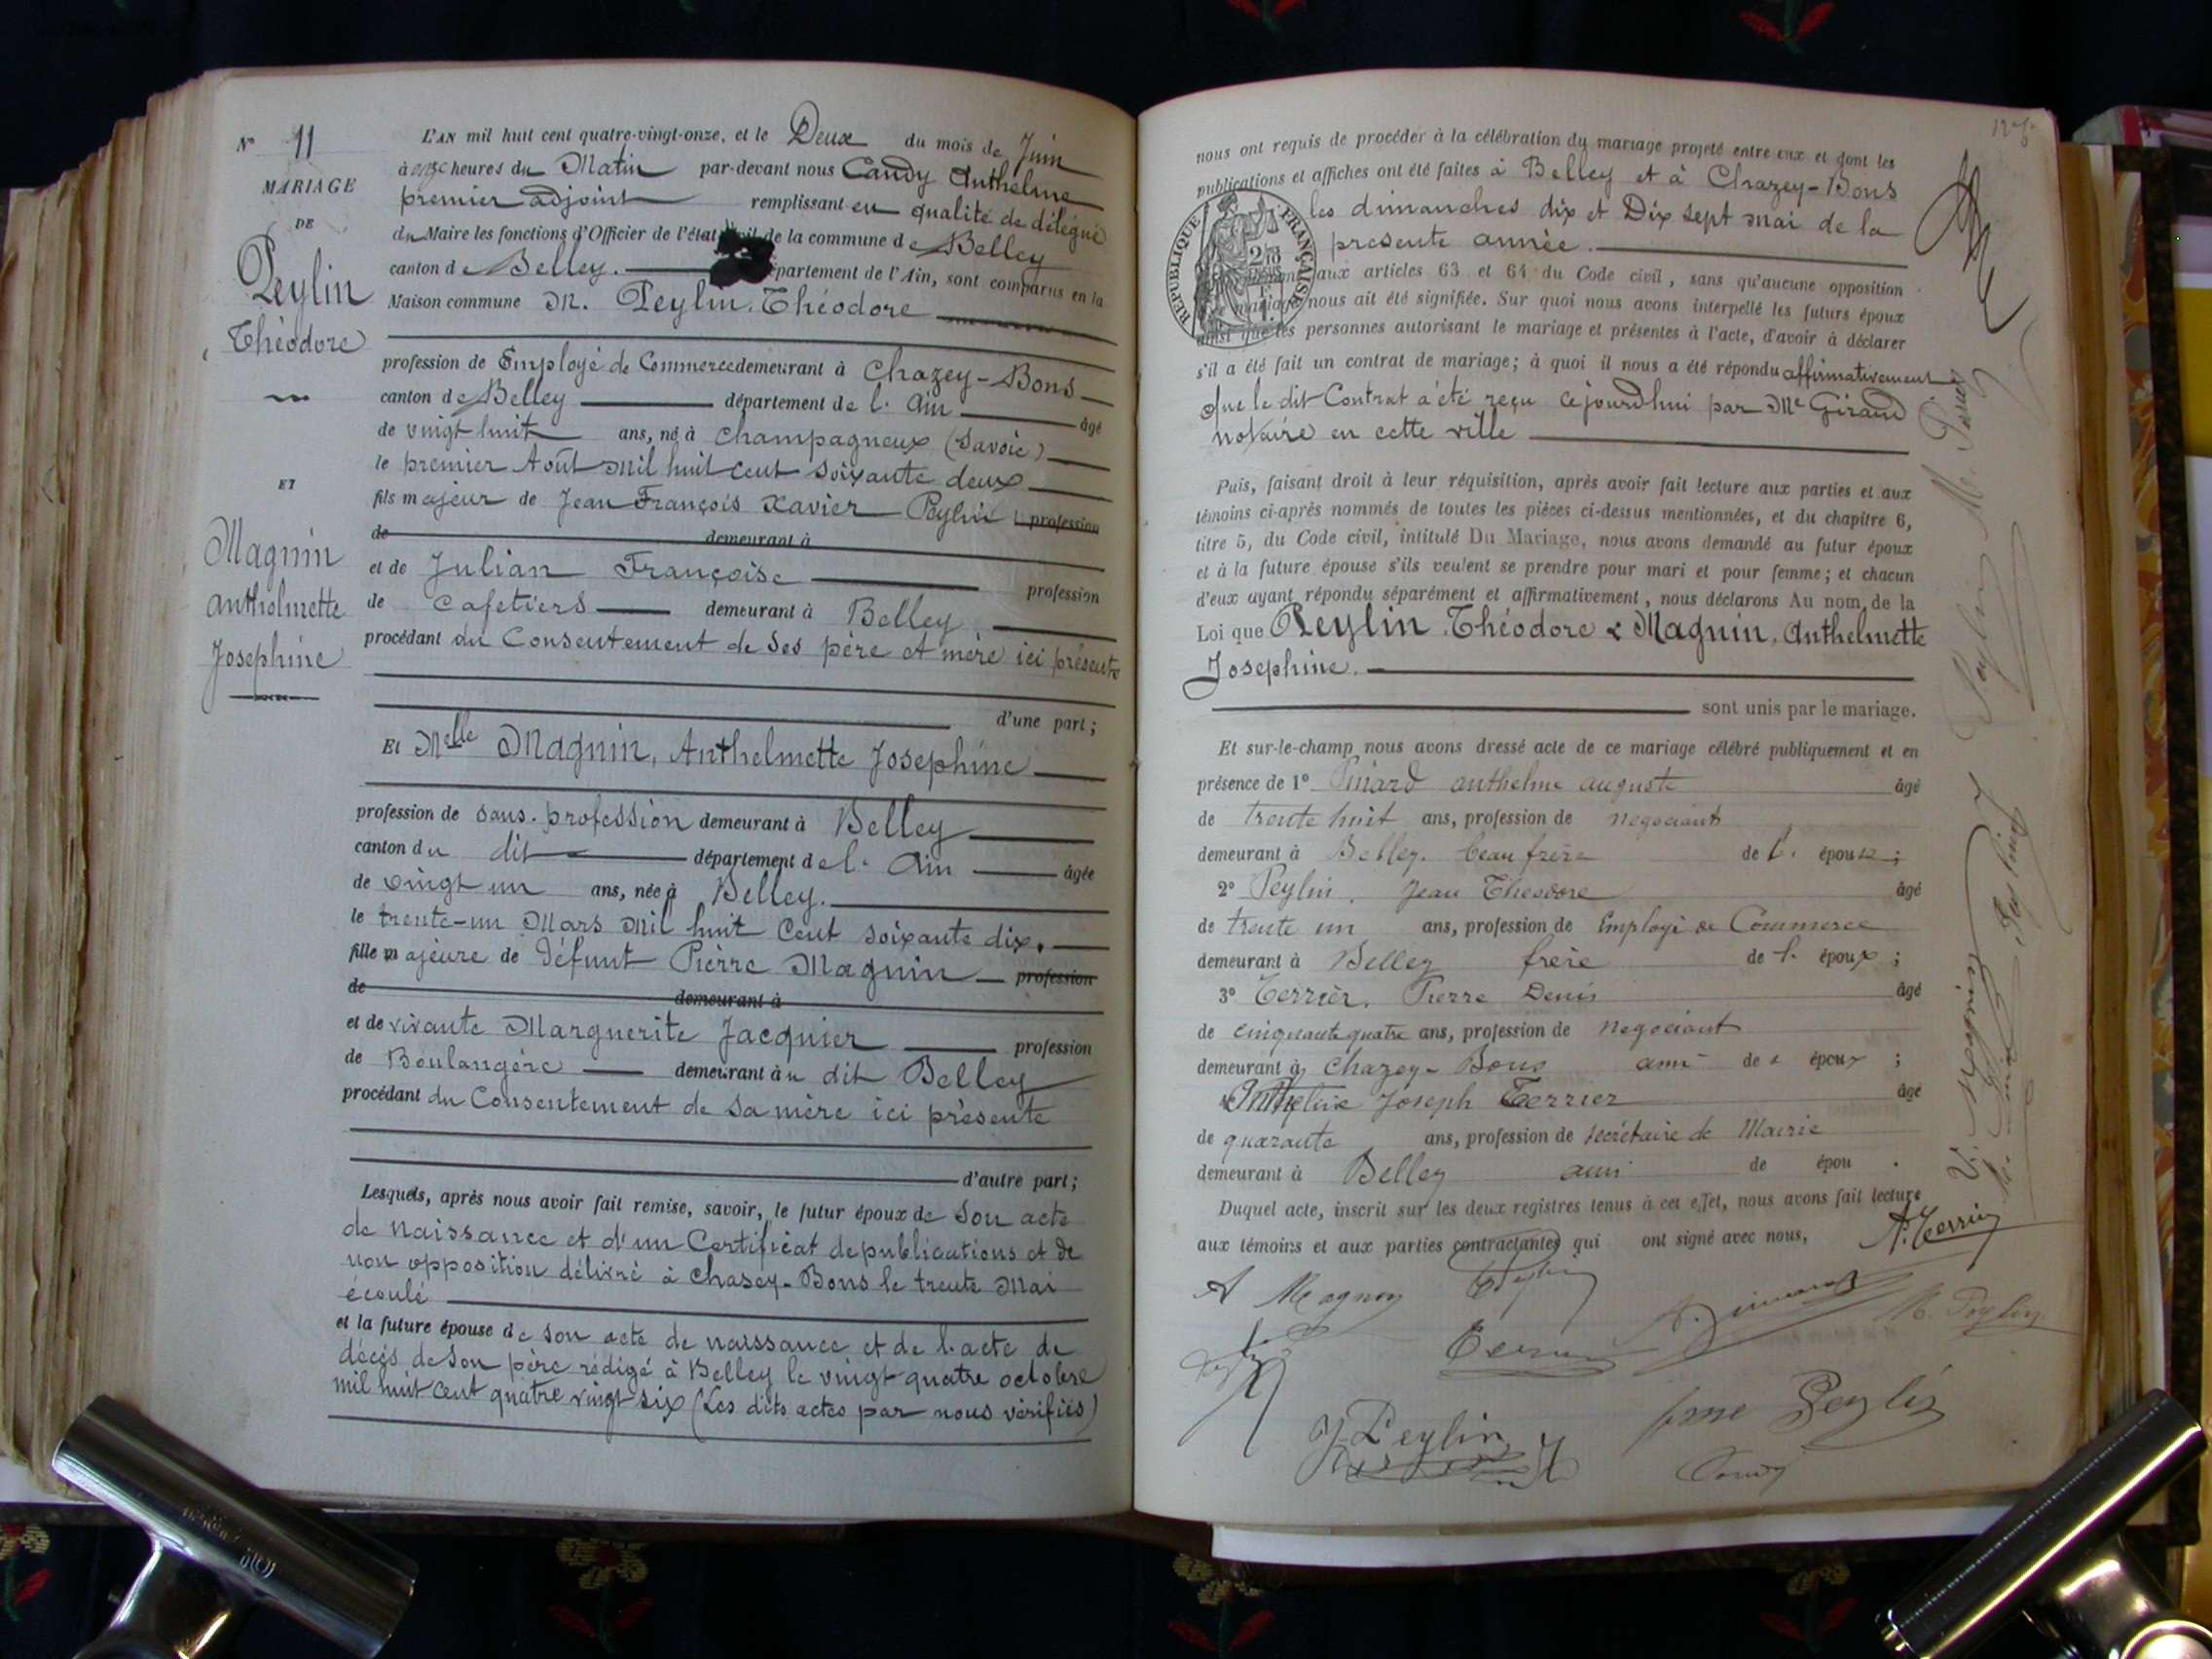 N° 11
MARIAGE
DE
Peylin
Théodore
ET
Magnin
Anthelmette
Josephine
L'AN mil huit cent quatre-vingt-onze, et le Deux du mois de Juin
à onze heures du Matin par-devant nous Candy Anthelme
premier adjoint remplissant en qualité de délégué
du Maire les fonctions d'Officier de l'état de la commune de Belley
canton de Belley. département de l'Ain, sont comparus en la
Maison commune M. Peylin, Théodore
profession de Employé de Commerce demeurant à Chazey-Bons
canton de Belley département de l'Ain âgé
de vingt huit ans, né à Champagneux (Savoie)
le premier Août mil huit cent soixante deux
fils majeur de Jean François Xavier Peylin profession
de demeurant à
et de Julian Françoise profession
de cafetiers demeurant à Belley
procédant du Consentement de ses père et mère ici présents
d'une part;
Et Melle Magnin, Anthelmette Josephine
profession de sans profession demeurant à Belley
canton du dit département de l'Ain âgée
de vingt un ans, née à Belley.
le trente-un Mars mil huit cent soixante dix.
fille majeure de défunt Pierre Magnin profession
de demeurant à
et de vivante Marguerite Jacquier profession
de Boulangère demeurant au dit Belley
procédant du Consentement de sa mère ici présente
d'autre part;
Lesquels, après nous avoir fait remise, savoir, le futur époux de son acte
de naissance et d'un Certificat de publications et de
non opposition délivré à Chasey-Bons le trente Mai
écoulé
et la future épouse de son acte de naissance et de l'acte de
décès de son père rédigé à Belley le vingt quatre octobre
mil huit cent quatre vingt six (Les dits actes par nous vérifiés)
nous ont requis de procéder à la célébration du mariage projeté entre eux et dont les
publications et affiches ont été faites à Belley et à Chazey-Bons
les dimanches dix et Dix sept mai de la
presente année.
RÉPUBLIQUE FRANÇAISE
aux articles 63 et 64 du Code civil, sans qu'aucune opposition
mariage nous ait été signifiée. Sur quoi nous avons interpellé les futurs époux
ainsi que les personnes autorisant le mariage et présentes à l'acte, d'avoir à déclarer
s'il a été fait un contrat de mariage; à quoi il nous a été répondu affirmativement
que le dit Contrat a été reçu cejourdhui par Me Giraud
notaire en cette ville
Puis, faisant droit à leur réquisition, après avoir fait lecture aux parties et aux
témoins ci-après nommés de toutes les pièces ci-dessus mentionnées, et du chapitre 6,
titre 5, du Code civil, intitulé Du Mariage, nous avons demandé au futur époux
et à la future épouse s'ils veulent se prendre pour mari et pour femme; et chacun
d'eux ayant répondu séparément et affirmativement, nous déclarons Au nom de la
Loi que Peylin Théodore & Magnin, Anthelmette
Josephine.
sont unis par le mariage.
Et sur-le-champ nous avons dressé acte de ce mariage célébré publiquement et en
présence de 1° anthelme auguste âgé
de trente huit ans, profession de negociant
demeurant à Belley. beau frère de l' épouse;
2° Peylin, Jean Theodore âgé
de trente un ans, profession de Employé de Commerce
demeurant à Belley frère de l' époux;
3° Terrier, Pierre Denis âgé
de cinquante quatre ans, profession de negociant
demeurant à Chazey-Bons ami de époux;
4° Anthelme Joseph Terrier âgé
de quarante ans, profession de secrétaire de Mairie
demeurant à Belley ami de épou .
Duquel acte, inscrit sur les deux registres tenus à cet effet, nous avons fait lecture
aux témoins et aux parties contractantes qui ont signé avec nous,
A. Terrier
A Magnin
M. Peylin
J. Peylin
fme Peylin
Candy